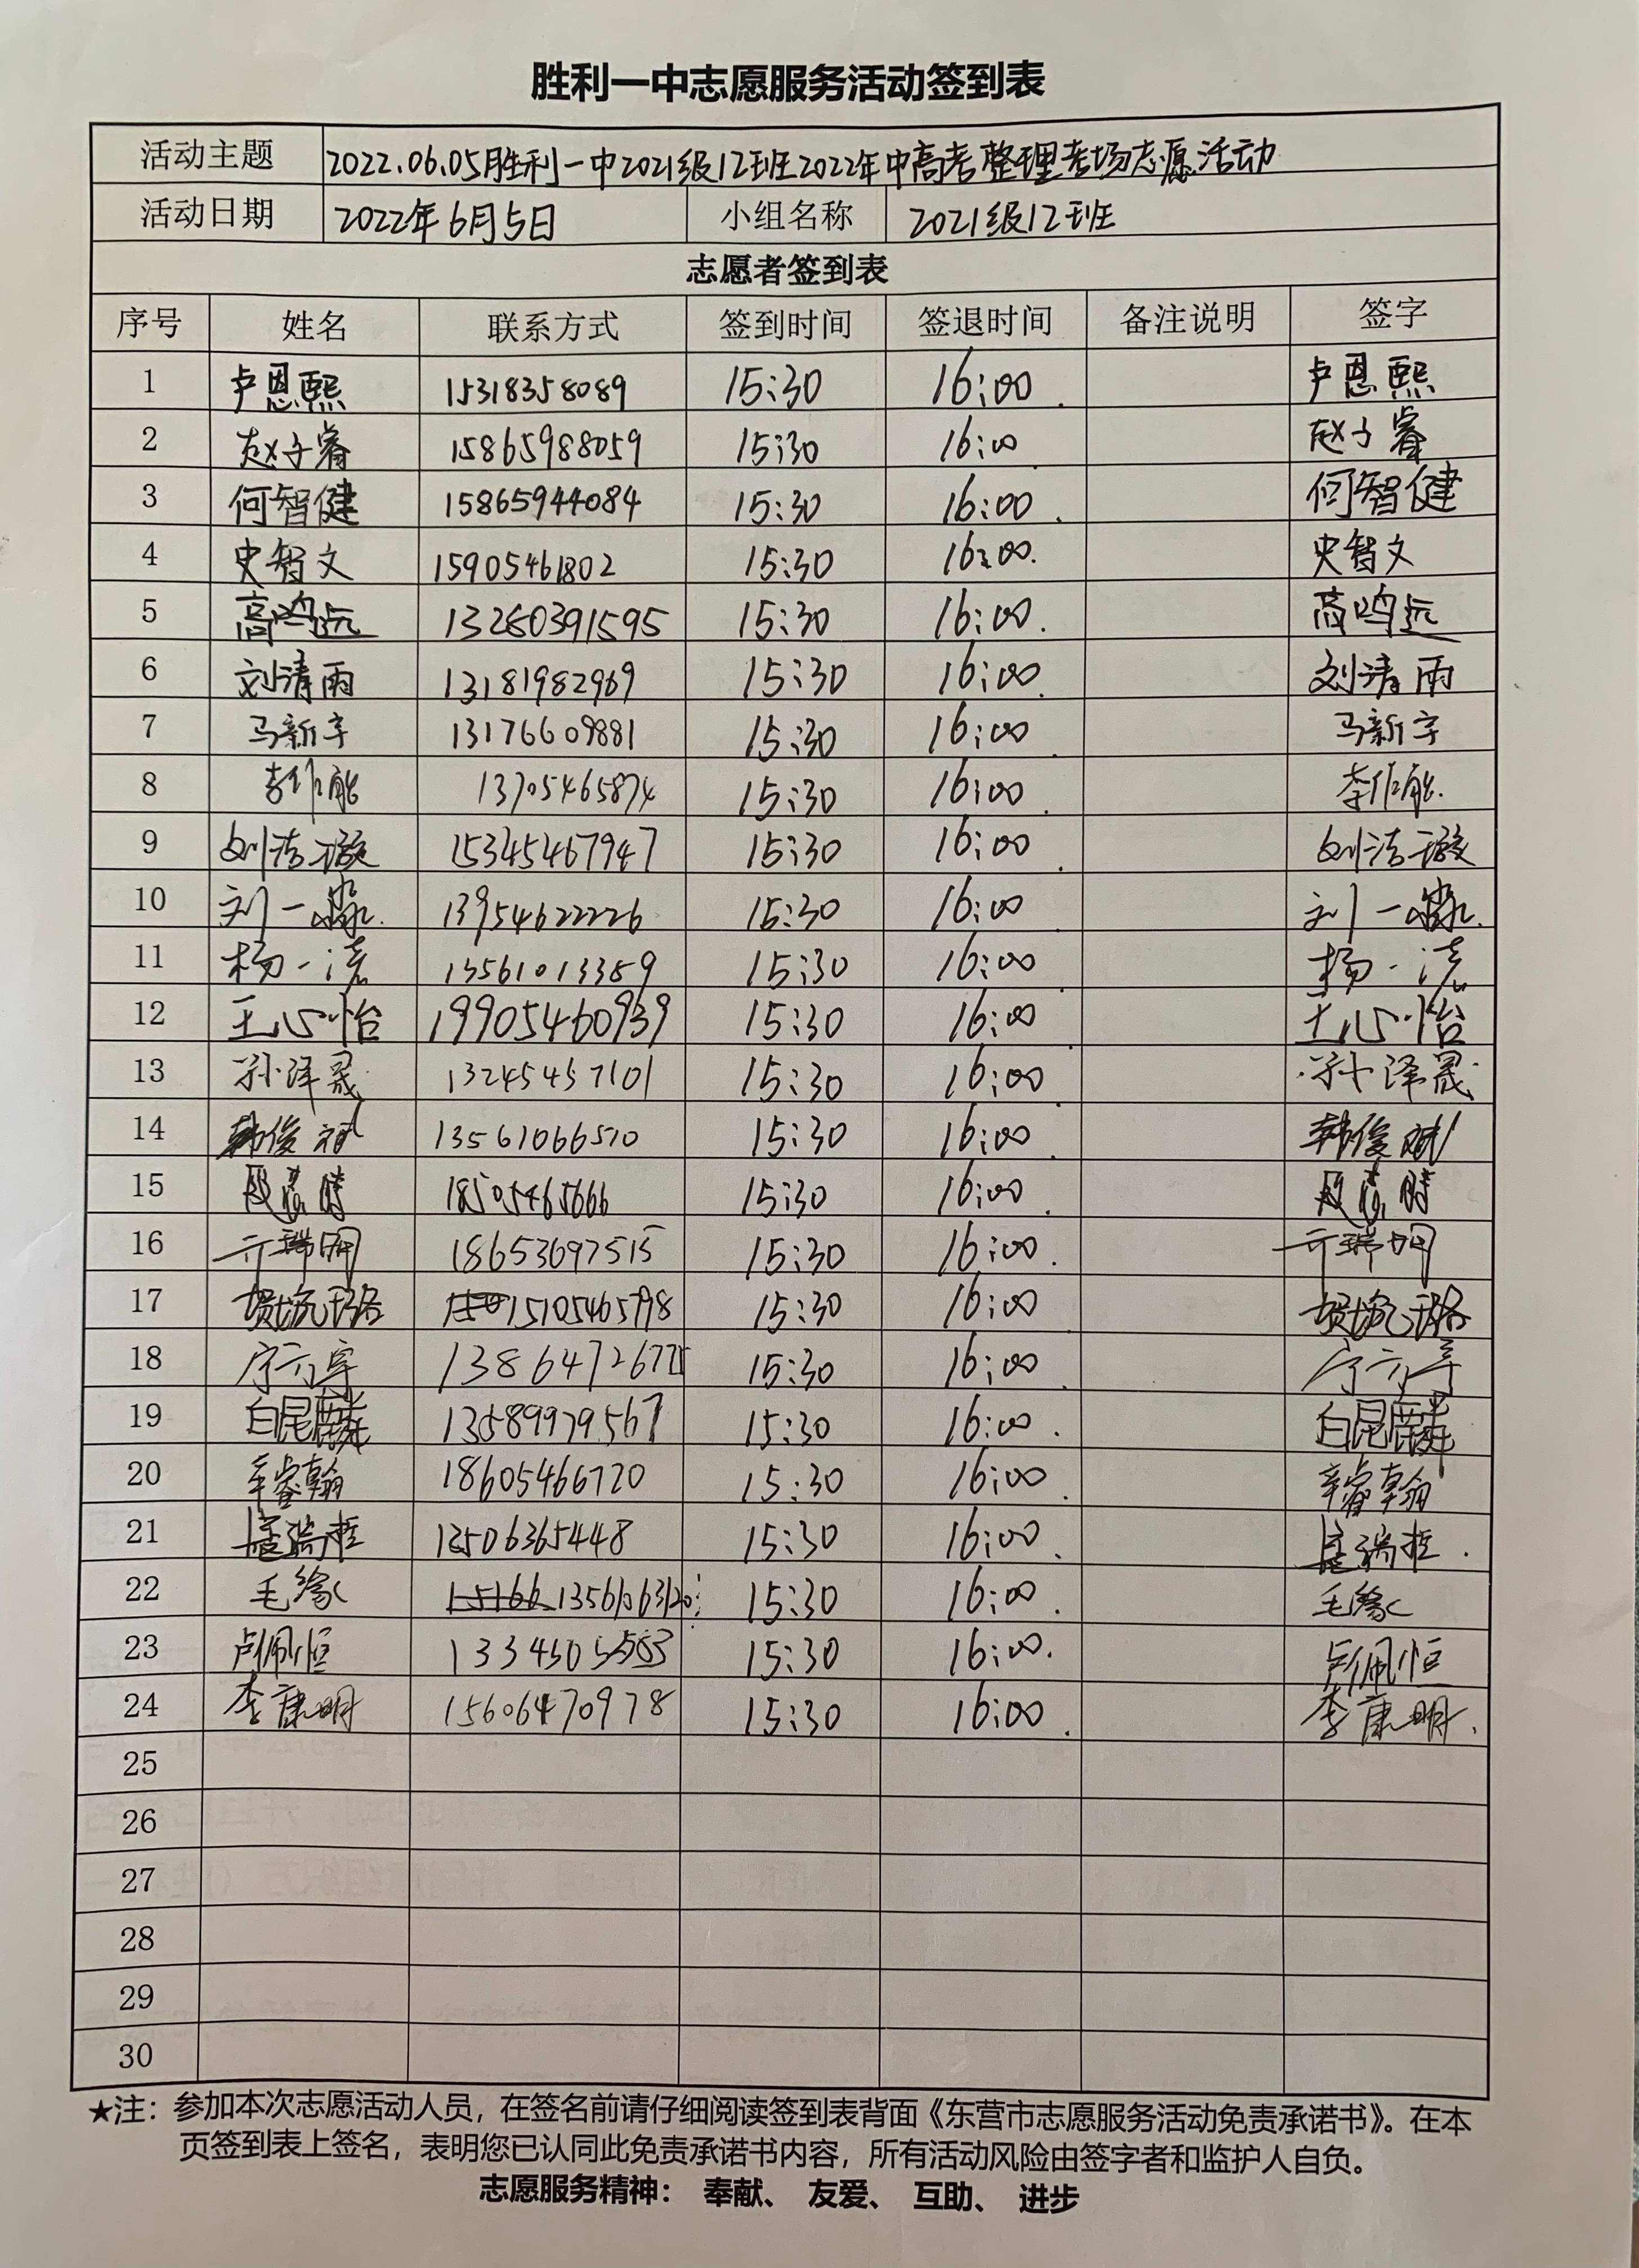 胜利一中志愿服务活动签到表
活动主题 2022.06.05胜利一中2021级12班2022年中高考整理考场志愿活动
活动日期 2022年6月5日 小组名称 2021级12班
志愿者签到表
序号 姓名 联系方式 签到时间 签退时间 备注说明 签字
1 卢恩熙 15318358089 15:30 16:00 卢恩熙
2 赵子睿 15865988059 15:30 16:00 赵子睿
3 何智健 15865944084 15:30 16:00 何智健
4 史智文 15905461802 15:30 16:00 史智文
5 高鸣远 13280391595 15:30 16:00 高鸣远
6 刘清雨 13181982969 15:30 16:00 刘清雨
7 马新宇 13176609881 15:30 16:00 马新宇
8 李作能 13705465874 15:30 16:00 李作能
9 刘洁璇 15345467947 15:30 16:00 刘洁璇
10 刘一淼 13954622226 15:30 16:00 刘一淼
11 杨一 13561013389 15:30 16:00 杨一
12 王心怡 19905460939 15:30 16:00 王心怡
13 孙泽晟 13245457101 15:30 16:00 孙泽晟
14 韩俊斌 13561066510 15:30 16:00 韩俊斌
15 18505465666 15:30 16:00
16 亓瑞明 18653697515 15:30 16:00 亓瑞明
17 15105465798 15:30 16:00
18 15:30 16:00
19 白昆麟 13589979567 15:30 16:00 白昆麟
20 辛睿翰 18605466720 15:30 16:00 辛睿翰
21 15:30 16:00
22 毛缘 15:30 16:00 毛缘
23 卢佩恒 15:30 16:00 卢佩恒
24 李康明 15606470978 15:30 16:00 李康明
25
26
27
28
29
30
★注：参加本次志愿活动人员，在签名前请仔细阅读签到表背面《东营市志愿服务活动免责承诺书》。在本
页签到表上签名，表明您已认同此免责承诺书内容，所有活动风险由签字者和监护人自负。
志愿服务精神： 奉献、 友爱、 互助、 进步